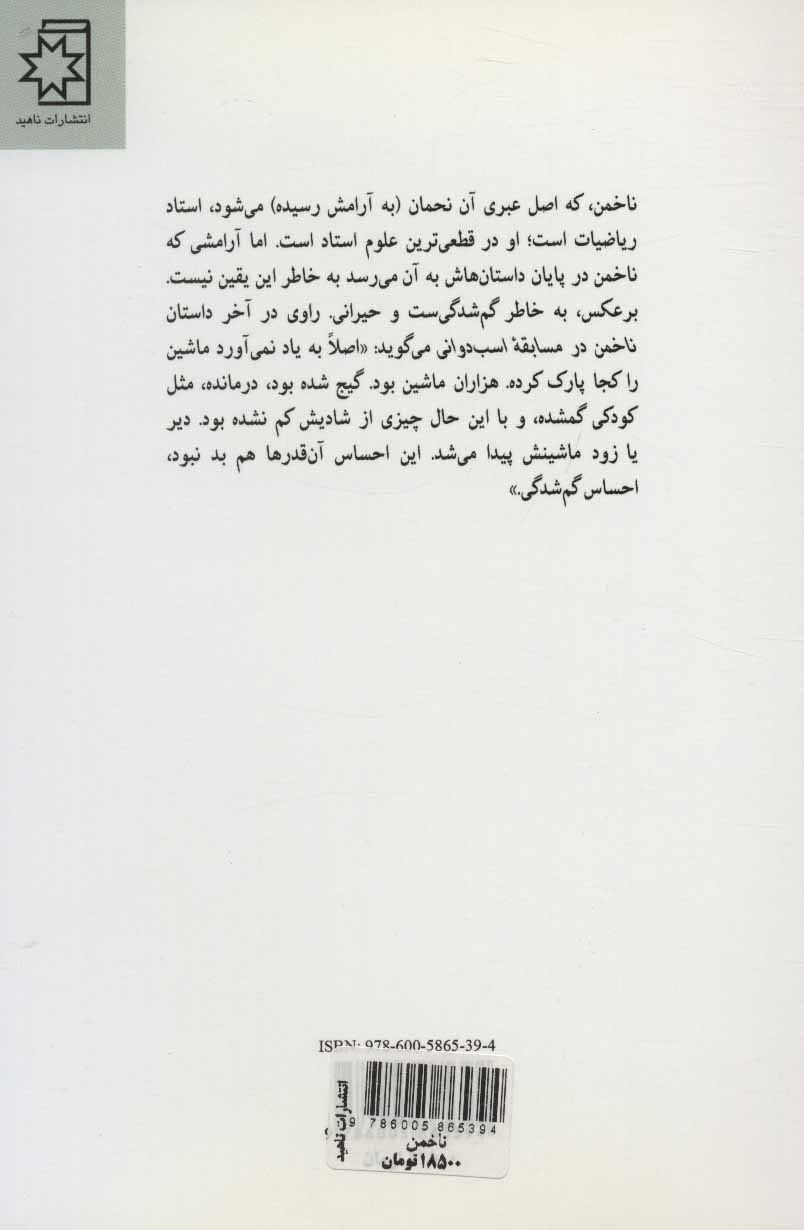 انتشارات ناهید
ناخمن، که اصل عبری آن نحمان (به آرامش رسیده) می‌شود، استاد
ریاضیات است؛ او در قطعی‌ترین علوم استاد است. اما آرامشی که
ناخمن در پایان داستان‌هاش به آن می‌رسد به خاطر این یقین نیست.
برعکس، به خاطر گم‌شدگی‌ست و حیرانی. راوی در آخر داستان
ناخمن در مسابقهٔ اسب‌دوانی می‌گوید: «اصلاً به یاد نمی‌آورد ماشین
را کجا پارک کرده. هزاران ماشین بود. گیج شده بود، درمانده، مثل
کودکی گمشده، و با این حال چیزی از شادیش کم نشده بود. دیر
یا زود ماشینش پیدا می‌شد. این احساس آن‌قدرها هم بد نبود،
احساس گم‌شدگی.»
ISBN: 978-600-5865-39-4
انتشارات ناهید
9 786005 865394
ناخمن
۱۸۵۰۰ تومان